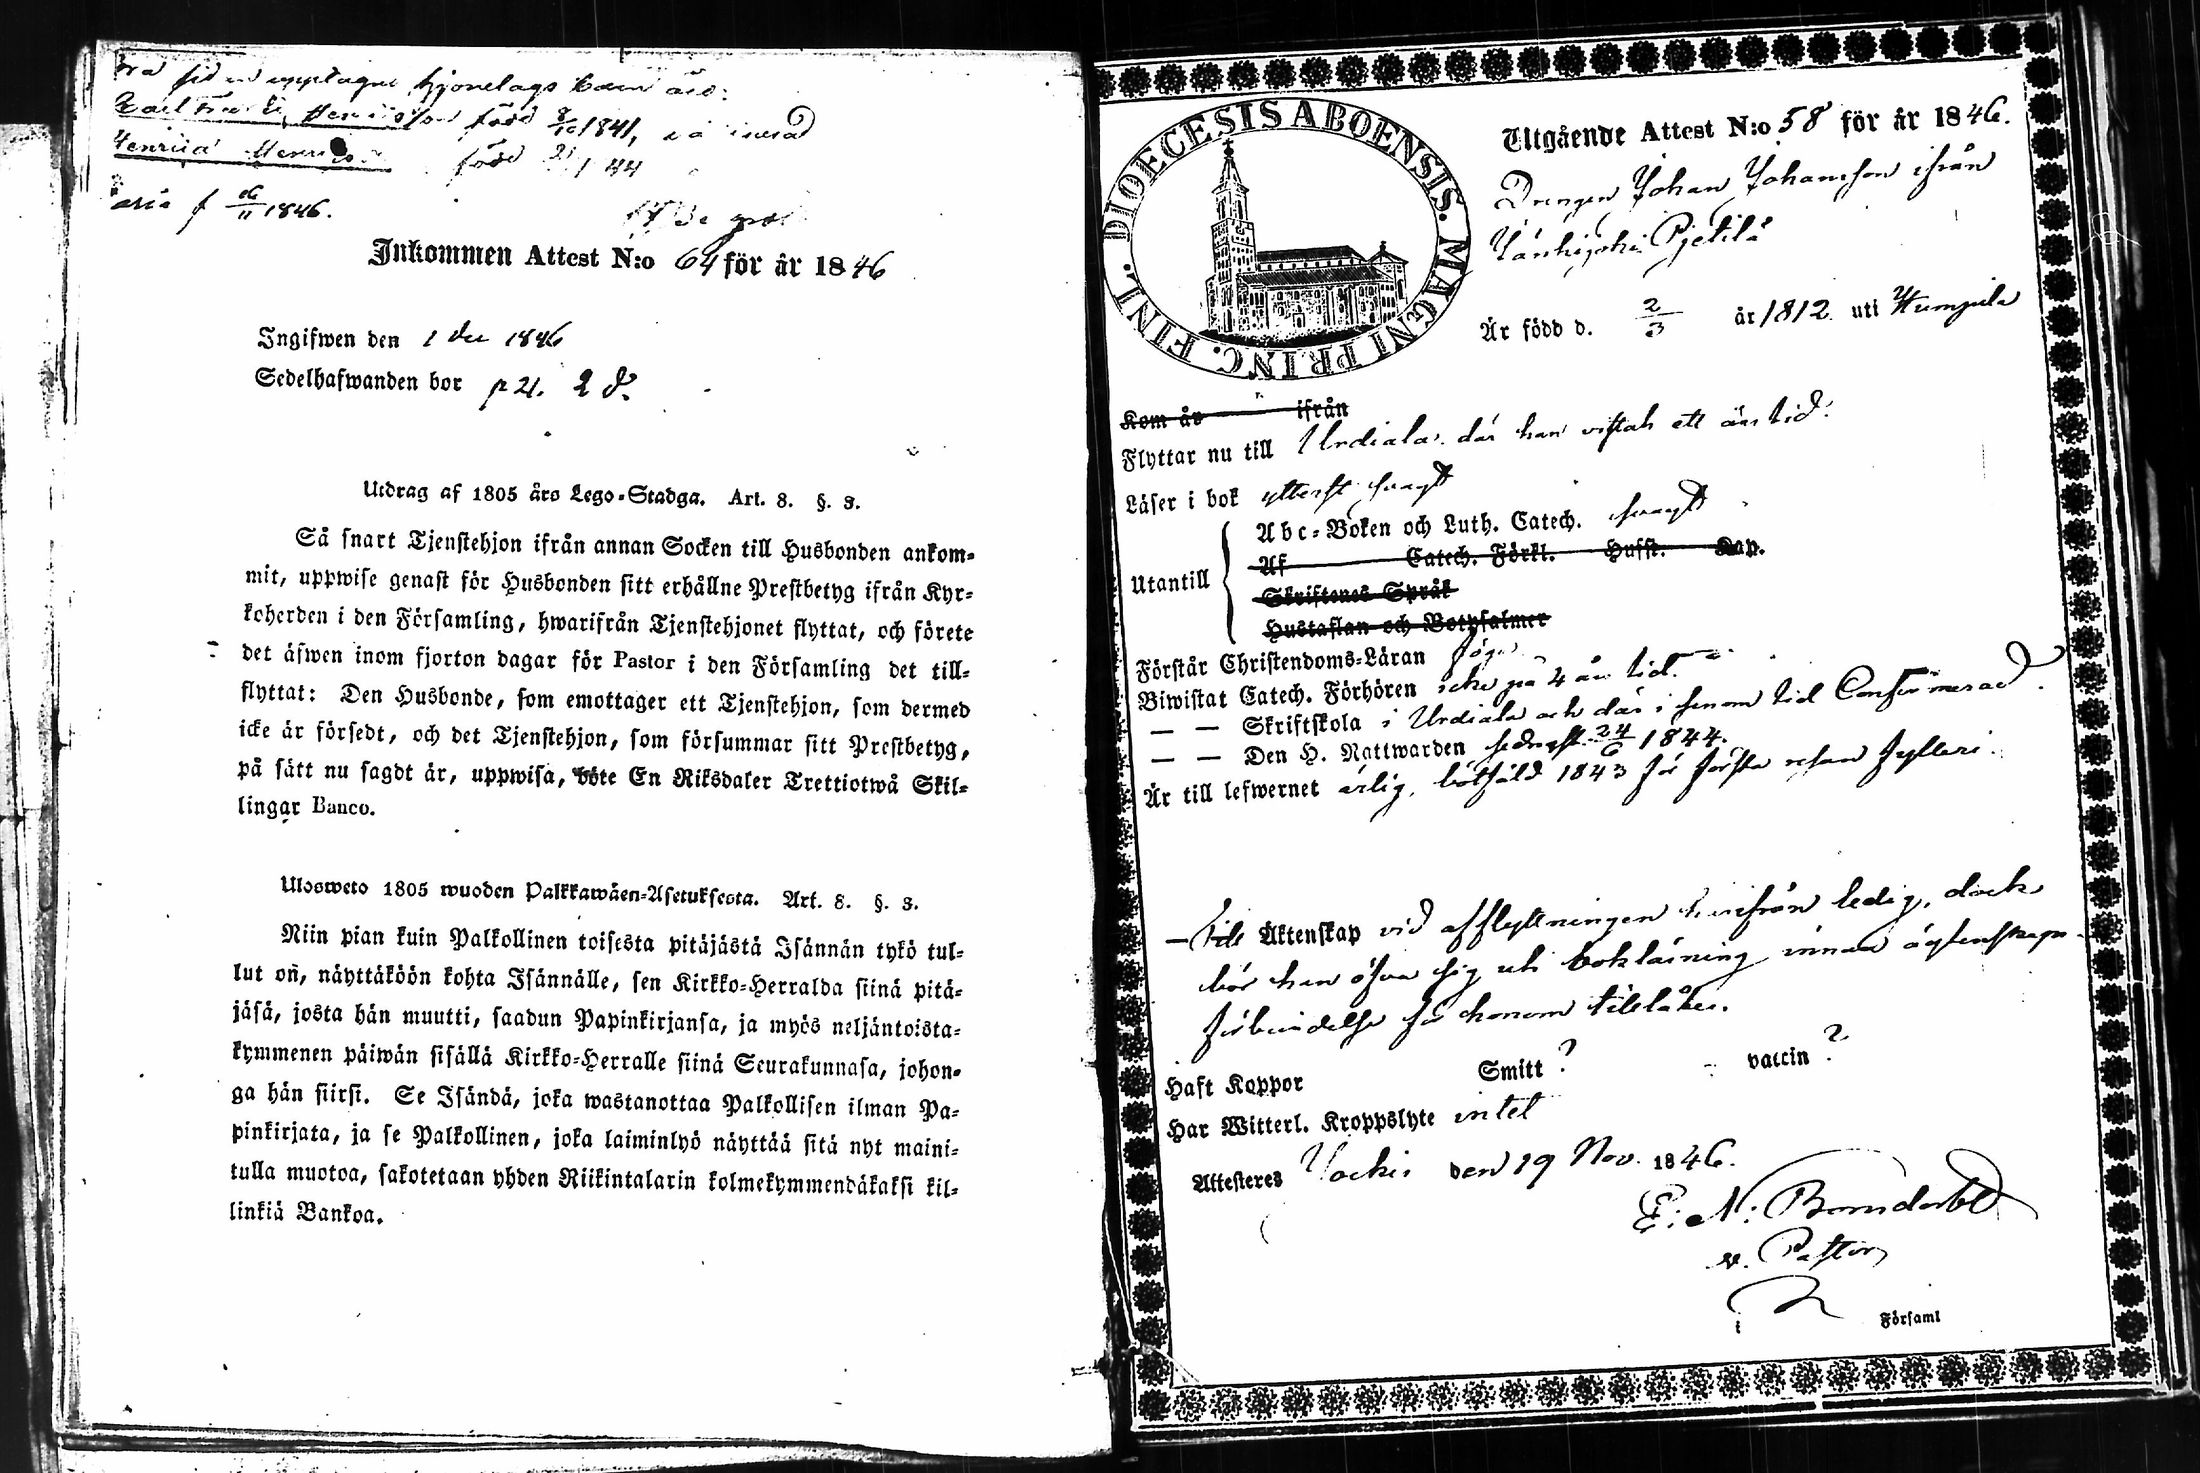 född 8/10 1841,
född 21/1 44
f 16/11 1846.
Inkommen Attest N:o 64 för år 1846
Ingifwen den 1 Dec 1846
Sedelhafwanden bor p 21.
Utdrag af 1805 års Lego-Stadga. Art. 8. §. 3.
Så snart Tjenstehjon ifrån annan Socken till Husbonden ankom-
mit, uppwise genast för Husbonden sitt erhållne Prestbetyg ifrån Kyr-
koherden i den Församling, hwarifrån Tjenstehjonet flyttat, och förete
det äfwen inom fjorton dagar för Pastor i den Församling det till-
flyttat: Den Husbonde, som emottager ett Tjenstehjon, som dermed
icke är försedt, och det Tjenstehjon, som försummar sitt Prestbetyg,
på sätt nu sagdt är, uppwisa, böte En Riksdaler Trettiotwå Skil-
lingar Banco.
Ulosweto 1805 wuoden Palkkawäen-Asetuksesta. Art. 8. §. 3.
Niin pian kuin Palkollinen toisesta pitäjästä Isännän tykö tul-
lut on̄, näyttäköön kohta Isännälle, sen Kirkko-Herralda siinä pitä-
jäsä, josta hän muutti, saadun Papinkirjansa, ja myös neljäntoista-
kymmenen päiwän sisällä Kirkko-Herralle siinä Seurakunnasa, johon-
ga hän siirsi. Se Isändä, joka wastanottaa Palkollisen ilman Pa-
pinkirjata, ja se Palkollinen, joka laiminlyö näyttää sitä nyt maini-
tulla muotoa, sakotetaan yhden Riikintalarin kolmekymmendäkaksi kil-
linkiä Bankoa.
DIOECESIS ABOENSIS. MAGNI PRINC. FINL.
Utgående Attest N:o 58 för år 1846.
Drengen Johan Johansson ifrån
Pjetilä
Är född d. 2/3 år 1812 uti Humpila
Kom år ifrån
Flyttar nu till Urdiala, där han vistats ett års tid.
Läser i bok ytterst svagt
Utantill
Abc-Boken och Luth. Catech. svagt
Af Catech. Förkl. Husst. Kap.
Skriftenes Språk
Hustaflan och Botpsalmer
Förstår Christendoms-Läran föga
Biwistat Catech. Förhören icke på 4 års tid.
— — Skriftskola i Urdiala och där i senom tid Confirmerad.
— — Den H. Nattwarden sednast 24/6 1844.
Är till lefwernet ärlig, bötfäld 1843 för första resan fylleri.
— Till Äktenskap vid afflyttningen härifrån ledig, dock
bör han öfva sig uti bokläsning innan ägtenskaps-
förbindelse för honom tillåtes.
Haft Koppor Smitt ? vaccin ?
Har Witterl. Kroppslyte intet
Attesteres Jockis den 19 Nov. 1846.
v. Pastor
i Församl